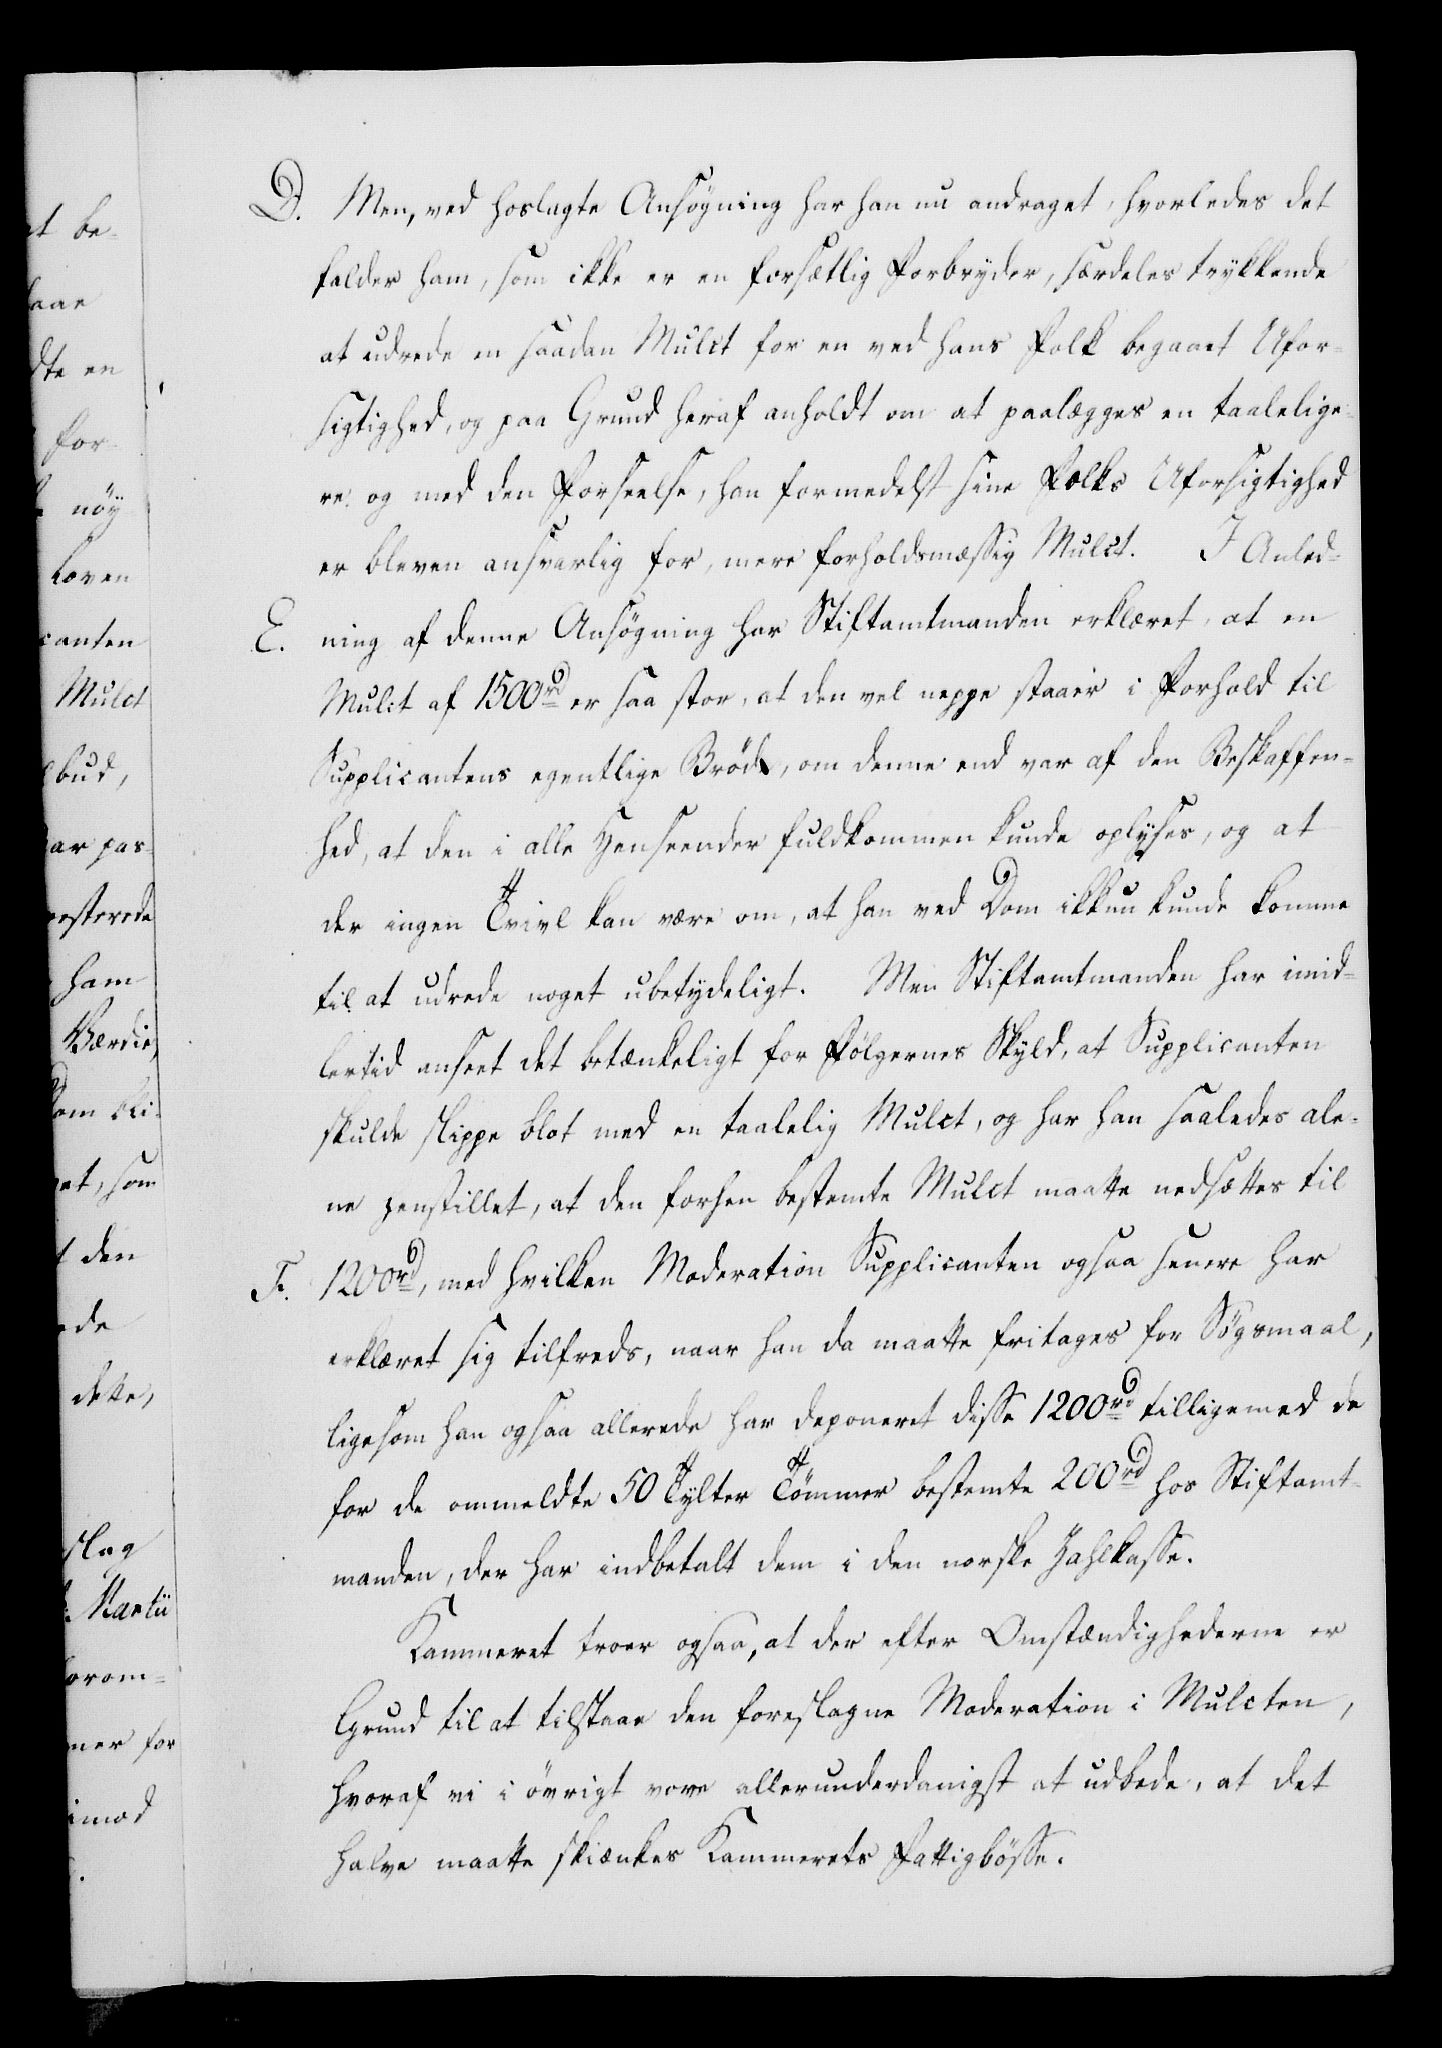 D. Men, ved hoslagte Ansøgning har han nu andraget, hvorledes det
falder ham, som ikke er en forsætlig Forbryder, særdeles trykkende
at udrede en saadan Mulct for en ved hans Folk begaaet Ufor-
sigtighed, og paa Grund heraf anholdt om at paalægges en taalelige-
re og med den Forseelse, han formedelst sine Folks Uforsigtighed
er bleven ansvarlig for, mere forholdsmæssig Mulct. I Anled-
E. ning af denne Ansøgning har Stiftamtmanden erklæret, at en
Mulct af 1500rd er saa stor, at den vel neppe staaer i Forhold til
Supplicantens egentlige Bröde, om denne end var af den Beskaffen-
hed, at den i alle Henseender fuldkommen kunde oplyses, og at
der ingen Tvivl kan være om, at han ved Dom ikkun kunde komme
til at udrede noget ubetydeligt. Men Stiftamtmanden har imid-
lertid anseet det betænkeligt for Følgernes Skyld, at Supplicanten
skulde slippe blot med en taalelig Mulct, og har han saaledes ale-
ne henstillet, at den forhen bestemte Mulct maatte nedsættes til
F. 1200rd, med hvilken Moderation Supplicanten ogsaa senere har
erklæret sig tilfreds, naar han da maatte fritages for Søgsmaal,
ligesom han ogsaa allerede har deponeret disse 1200rd tilligemed de
for de ommeldte 50 Tylter Tömmer bestemte 200rd hos Stiftamt-
manden, der har indbetalt dem i den norske Zahlkasse.
Kammeret troer ogsaa, at der efter Omstændighederne er
Grund til at tilstaae den foreslagne Moderation i Mulcten,
hvoraf vi i övrigt vove allerunderdanigst at udbede, at det
halve maatte skienkes Kammerets Fattigbösse.